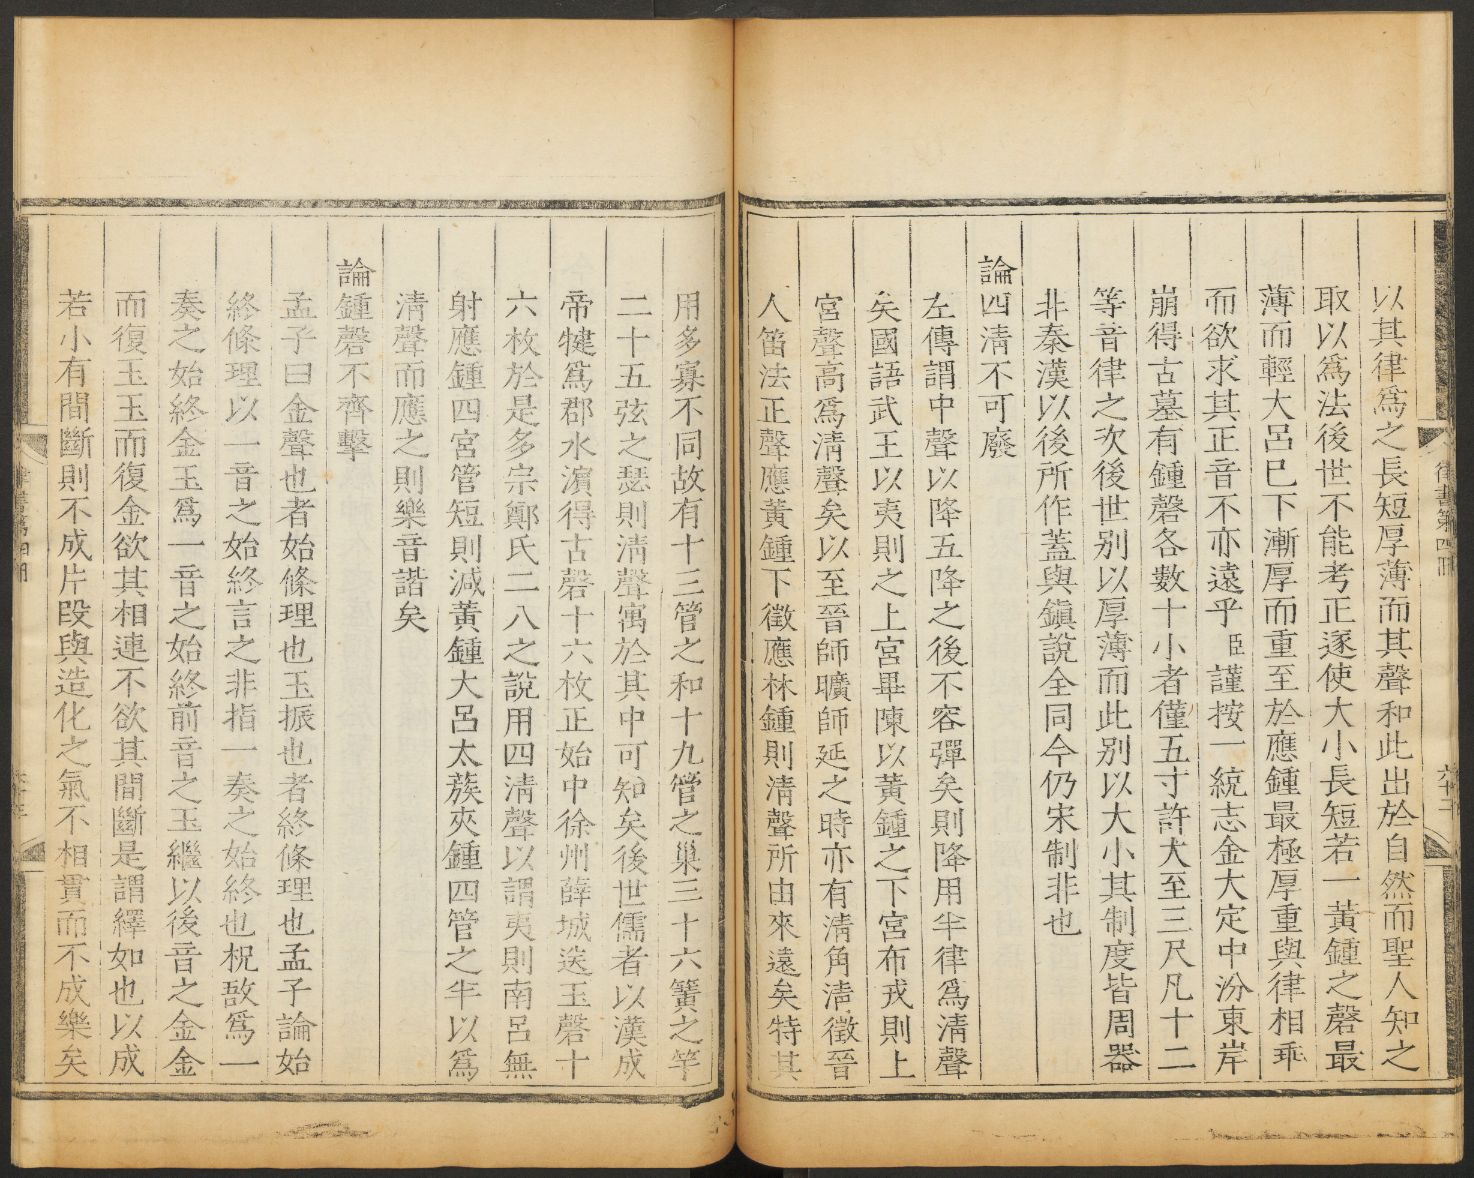 以其律爲之長短厚薄而其聲和此出於自然而聖人知之
取以爲法後世不能考正逐使大小長短若一黃鍾之磬最
薄而輕大呂已下漸厚而重至於應鍾最極厚重與律相乖
而欲求其正音不亦遠乎臣謹按一統志金大定中汾東岸
崩得古墓有鍾磬各數十小者僅五寸許大至三尺凡十二
等音律之次後世别以厚薄而此别以大小其制度皆周器
非秦漢以後所作蓋與鎭說全同今仍宋制非也
論四清不可廢
左傳謂中聲以降五降之後不容彈矣則降用半律爲清聲
矣國語武王以夷則之上宮畢陳以黃鍾之下宮布戎則上
宮聲高爲清聲矣以至晉師曠師延之時亦有清角清徵晉
人笛法正聲應黃鍾下徵應林鍾則清聲所由來遠矣特其
律書第四冊
六十二
用多寡不同故有十三管之和十九管之巢三十六簧之竽
二十五弦之瑟則清聲寓於其中可知矣後世儒者以漢成
帝犍爲郡水濱得古磬十六枚正始中徐州薛城送玉磬十
六枚於是多宗鄭氏二八之說用四清聲以謂夷則南呂無
射應鍾四宮管短則減黃鍾大呂太蔟夾鍾四管之半以爲
清聲而應之則樂音諧矣
論鍾磬不齊擊
孟子曰金聲也者始條理也玉振也者終條理也孟子論始
終條理以一音之始終言之非指一奏之始終也柷敔爲一
奏之始終金玉爲一音之始終前音之玉繼以後音之金金
而復玉玉而復金欲其相連不欲其間斷是謂繹如也以成
若小有間斷則不成片段與造化之氣不相貫而不成樂矣